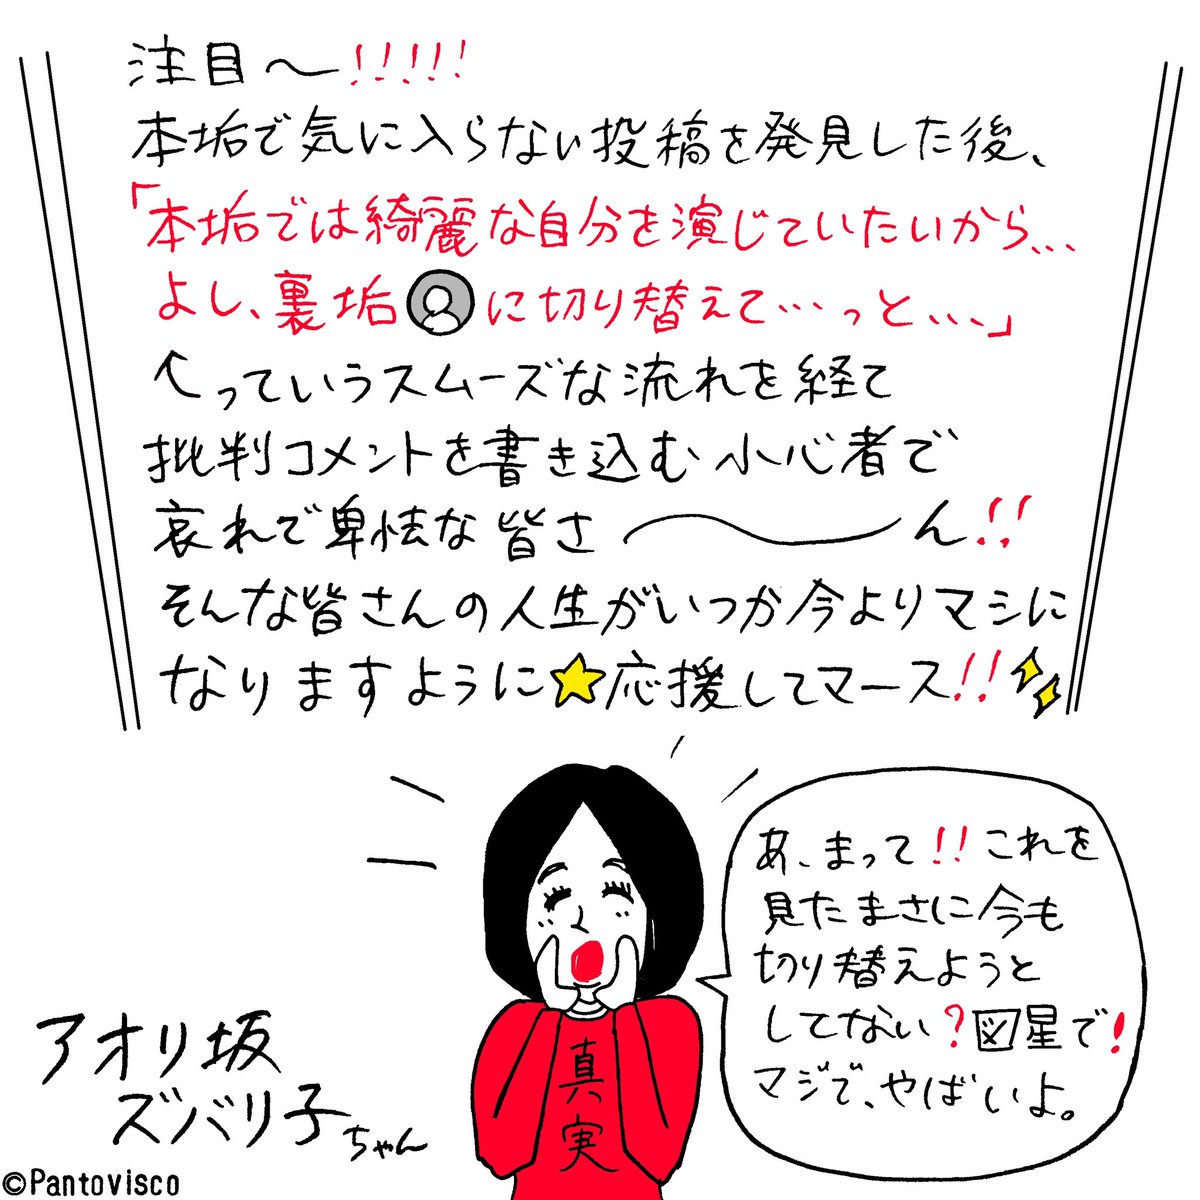 注目〜!!!!!
本垢で気に入らない投稿を発見した後、
「本垢では綺麗な自分を演じていたいから...
よし、裏垢に切り替えて...っと...」
↑っていうスムーズな流れを経て
批判コメントを書き込む小心者で
哀れで卑怯な皆さ〜ん!!
そんな皆さんの人生がいつか今よりマシに
なりますように⭐応援してマース!!✨
あ、まって!!これを
見たまさに今も
切り替えようと
してない?図星で!
マジで、やばいよ。
真実
アオリ坂
ズバリ子ちゃん
©Pantovisco